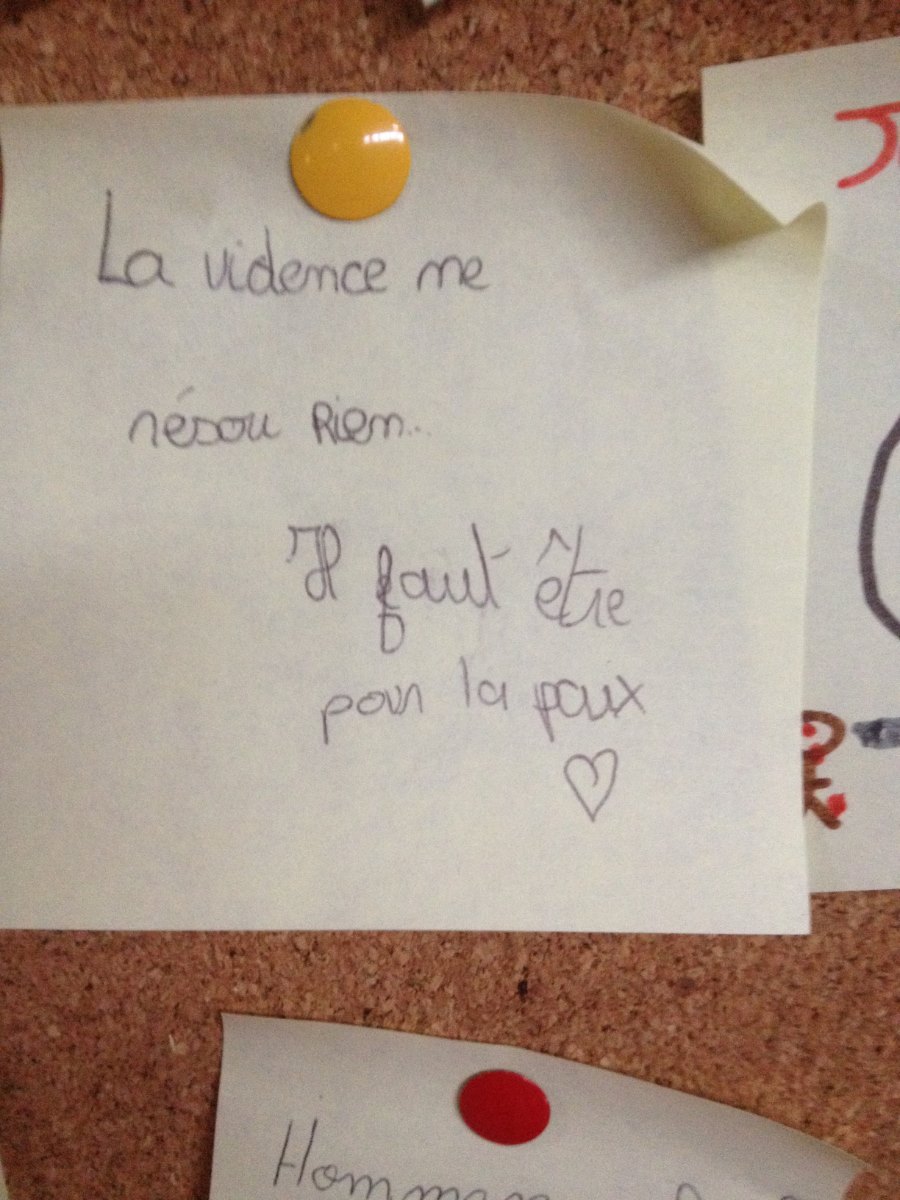 La vidence ne
résou Rien...
Il faut être
pour la paux
♡
Hommage